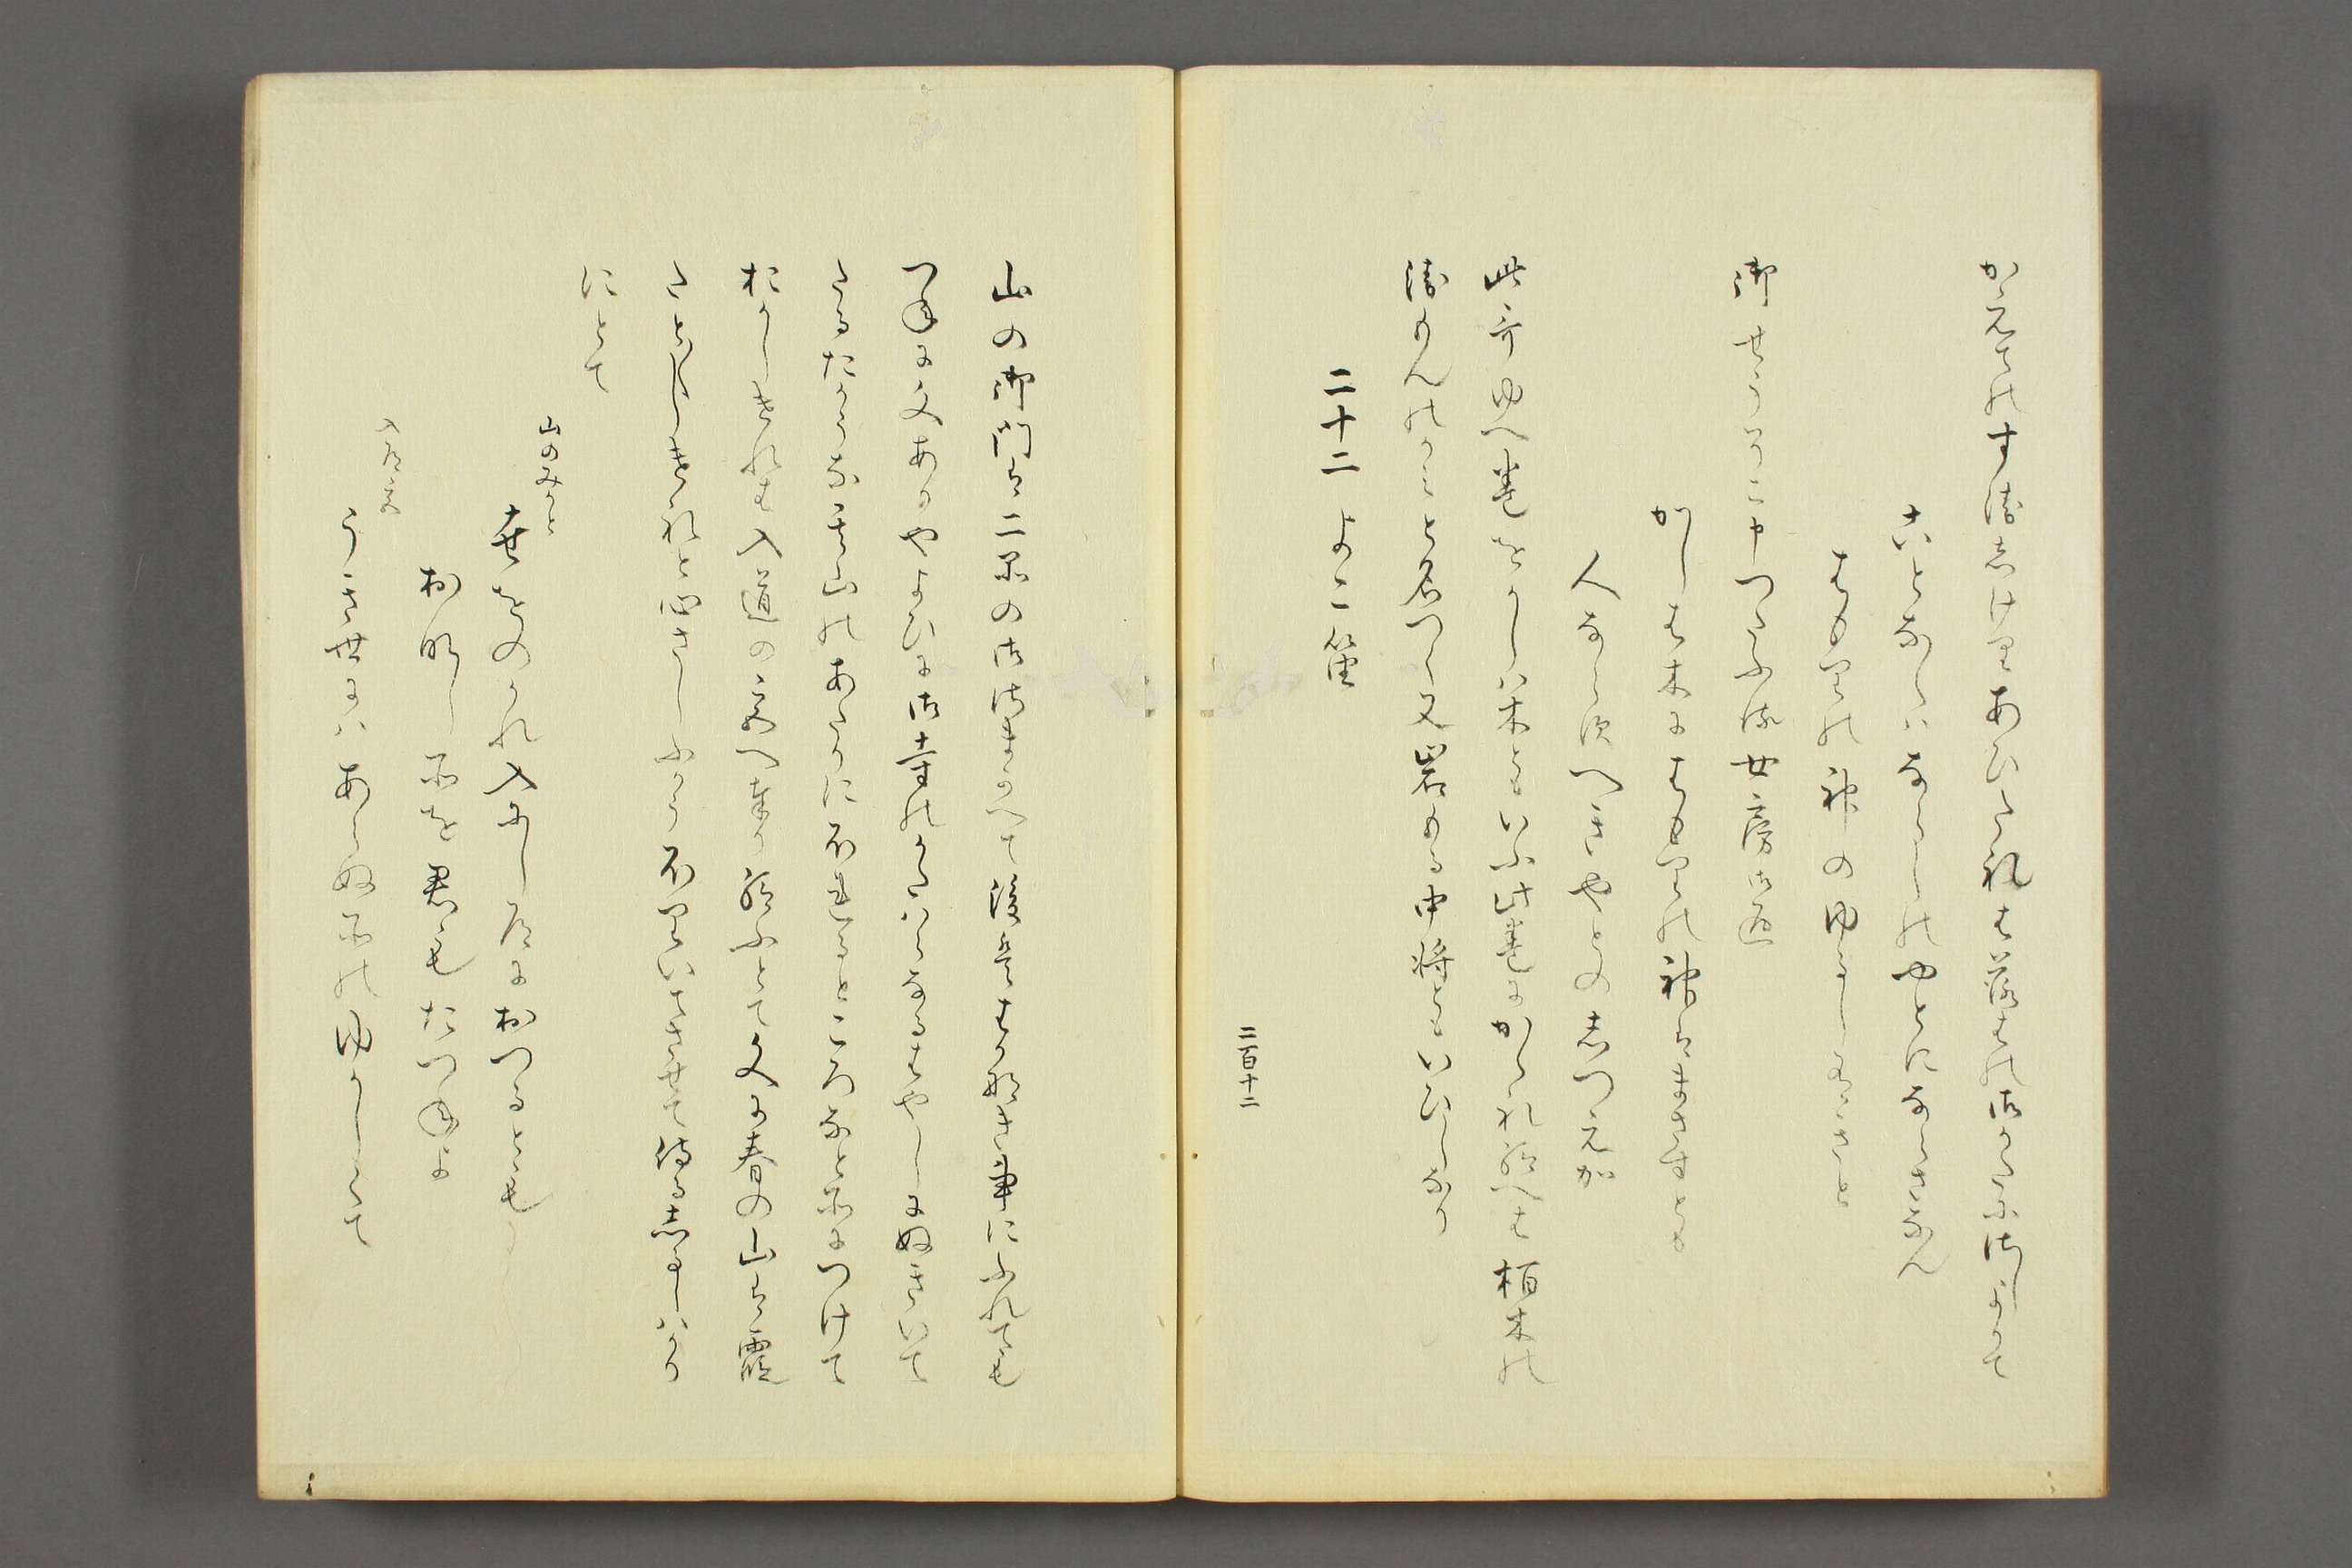 かえてのすゑしけりあひたれは落はの御かたに御よりて
ことならはならしのやとにならさなん
はもりの神のゆるしありきと
御せうそこ申つたふる女房御返
かしは木にはもりの神はまさすとも
人ならすへきやとのしつえか
此哥ゆへ巻をかしは木ともいふ此巻にかくれ給へは柏木の
衛もんのかみと名つく又岩もる中将ともいひしなり
二十二 よこ笛
二百十二
山の御門は二品の御さまかへて後ははかなき事にふれても
つねに文ありやよひに御寺のかたはらなるはやしにぬきいて
たるたかうな其山のあたりにほれるところなと所につけて
おかしけれは入道の宮へ奉り給ふとて文に春の山は霞
たと〳〵しけれと心さしふかくほりいてさせて侍るしるしはかり
にとて
山のみかと
世をわかれ入なん道におくるとも
おなし所を君もたつねよ
入道宮
うき世にはあらぬ所のゆかしくて